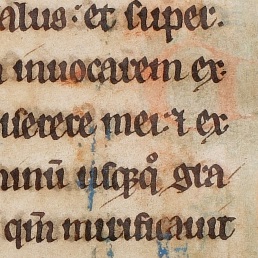 alus : et super.
inuocarem ex
iserere mei ⁊ ex
minū usq̨q̊ gra
qm̄ mirificauit